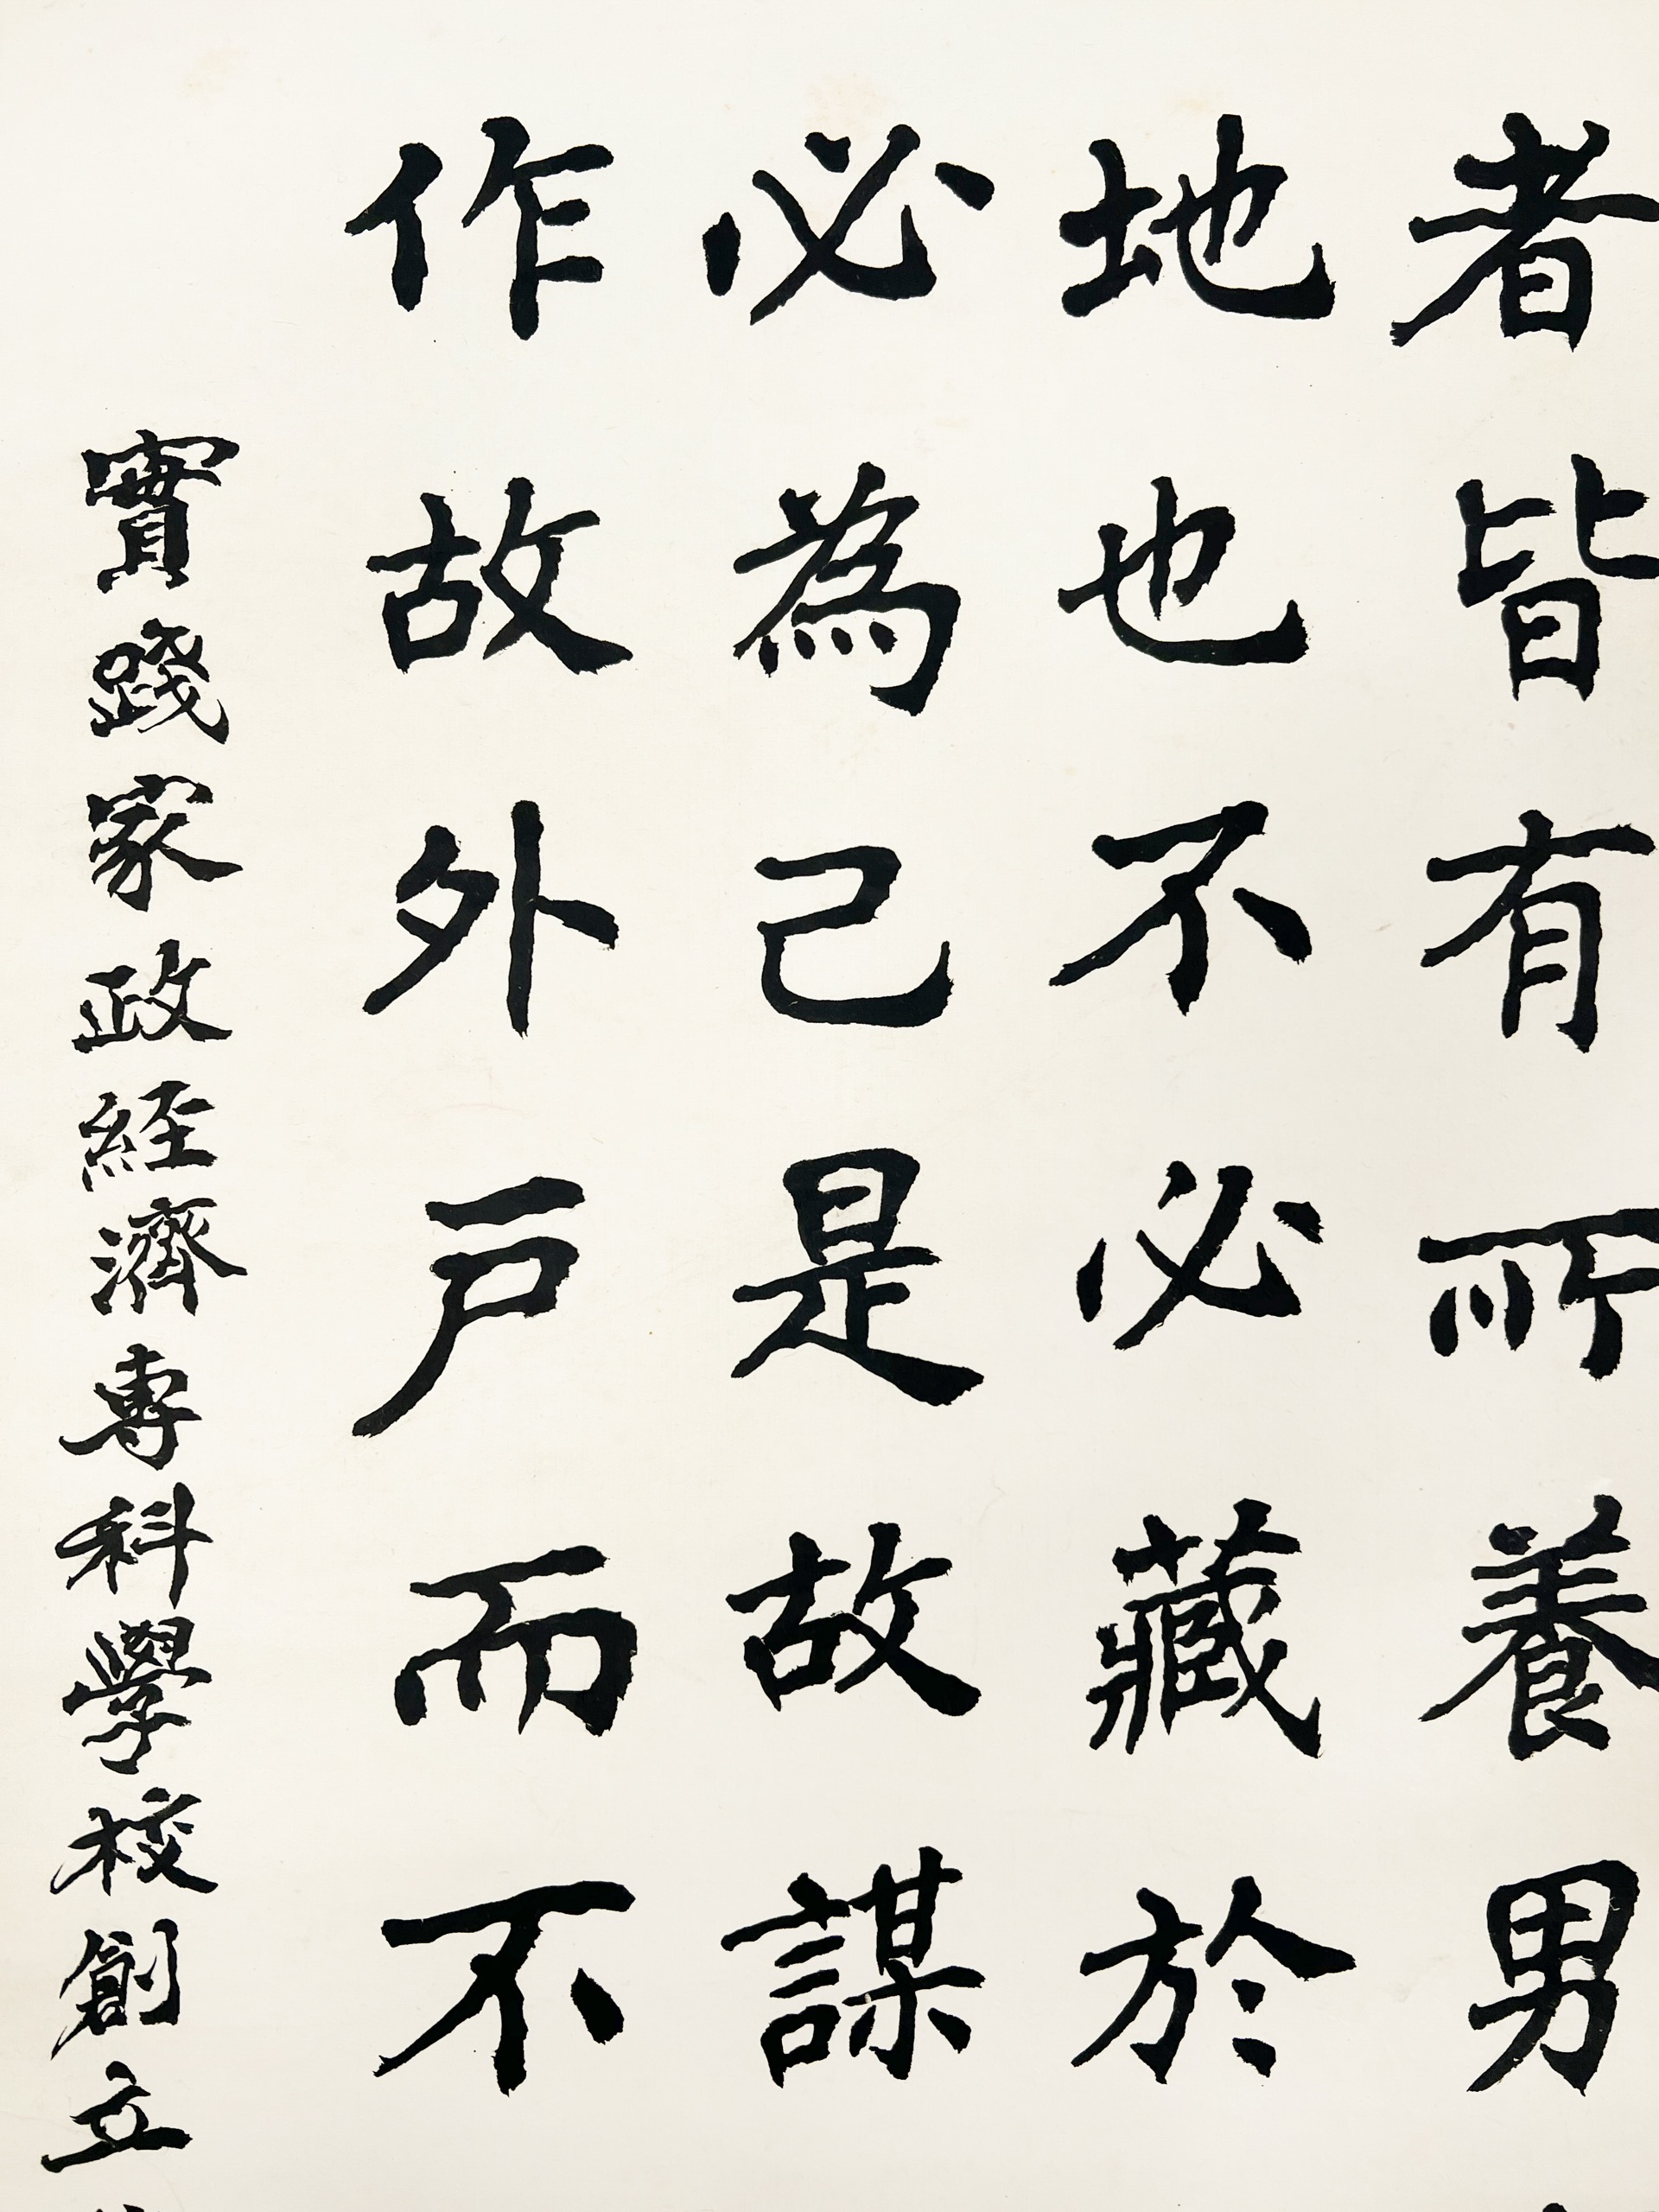 者皆有所養男
地也不必藏於
必為己是故謀
作故外戶而不
實踐家政経濟專科學校創立